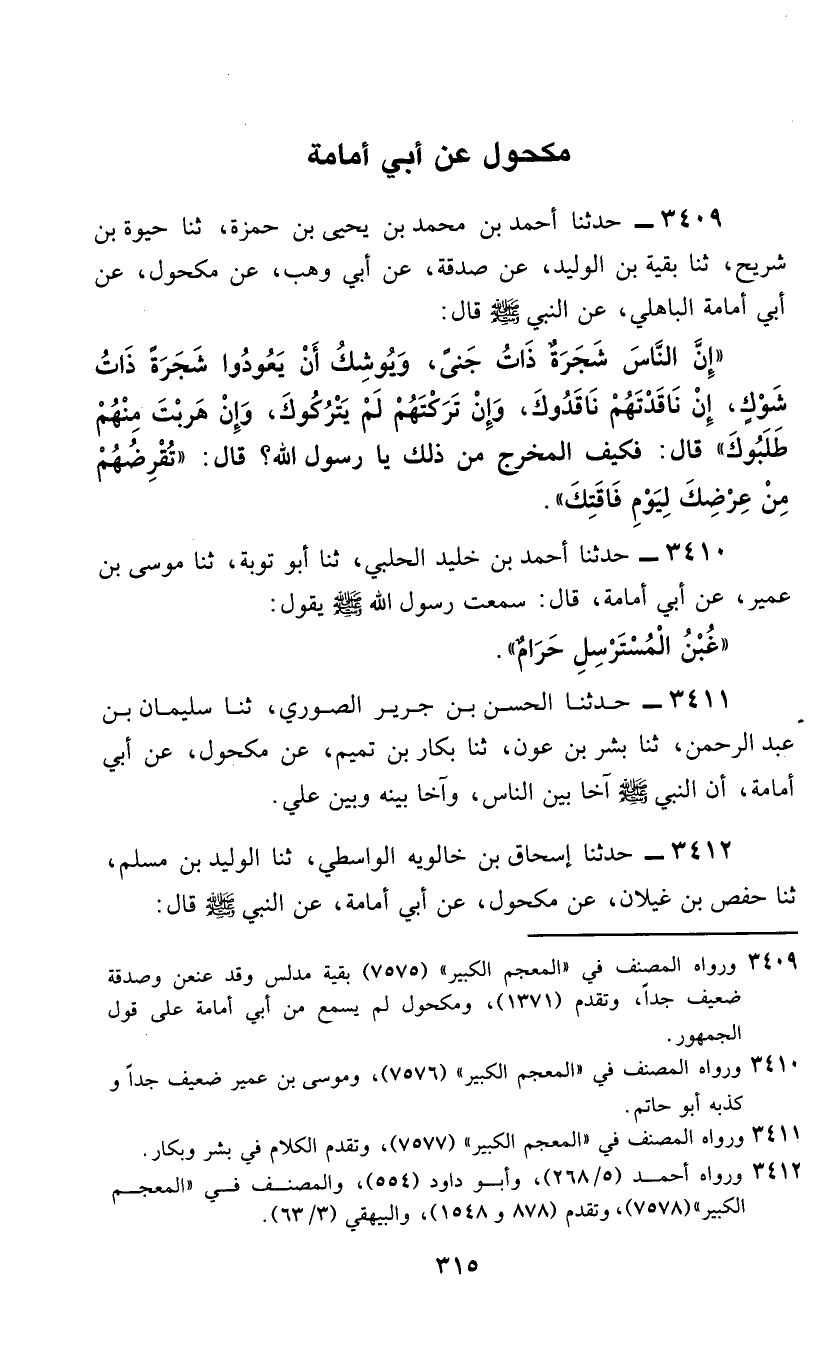 مكحول عن أبي أمامة
٣٤٠٩ ـ حدثنا أحمد بن محمد بن يحيى بن حمزة، ثنا حيوة بن
شريح، ثنا بقية بن الوليد، عن صدقة، عن أبي وهب، عن مكحول، عن
أبي أمامة الباهلي، عن النبي ﷺ قال:
«إِنَّ النَّاسَ شَجَرَةٌ ذَاتُ جَنىً، وَيُوشِكُ أَنْ يَعُودُوا شَجَرَةً ذَاتُ
شَوْكٍ، إِنْ نَاقَدْتَهُمْ نَاقَدُوكَ، وَإِنْ تَرَكْتَهُمْ لَمْ يَتْرُكُوكَ، وَإِنْ هَربْتَ مِنْهُمْ
طَلَبُوكَ» قال: فكيف المخرج من ذلك يا رسول الله؟ قال: «تُقْرِضُهُمْ
مِنْ عِرْضِكَ لِيَوْمِ فَاقَتِكَ».
٣٤١٠ ـ حدثنا أحمد بن خليد الحلبي، ثنا أبو توبة، ثنا موسى بن
عمير، عن أبي أمامة، قال: سمعت رسول الله ﷺ يقول:
«غُبْنُ الْمُسْتَرْسِلِ حَرَامٌ».
٣٤١١ ـ حدثنا الحسن بن جرير الصوري، ثنا سليمان بن
عبد الرحمن، ثنا بشر بن عون، ثنا بكار بن تميم، عن مكحول، عن أبي
أمامة، أن النبي ﷺ آخا بين الناس، وآخا بينه وبين علي.
٣٤١٢ ـ حدثنا إسحاق بن خالويه الواسطي، ثنا الوليد بن مسلم،
ثنا حفص بن غيلان، عن مكحول، عن أبي أمامة، عن النبي ﷺ قال:
٣٤٠٩ ورواه المصنف في «المعجم الكبير» (٧٥٧٥) بقية مدلس وقد عنعن وصدقة
ضعيف جداً، وتقدم (١٣٧١)، ومكحول لم يسمع من أبي أمامة على قول
الجمهور.
٣٤١٠ ورواه المصنف في «المعجم الكبير» (٧٥٧٦)، وموسى بن عمير ضعيف جداً و
كذبه أبو حاتم.
٣٤١١ ورواه المصنف في «المعجم الكبير» (٧٥٧٧)، وتقدم الكلام في بشر وبكار.
٣٤١٢ ورواه أحمد (٥/٢٦٨)، وأبو داود (٥٥٤)، والمصنف في «المعجم
الكبير»(٧٥٧٨)، وتقدم (٨٧٨ و ١٥٤٨)، والبيهقي (٣/٦٣).
٣١٥